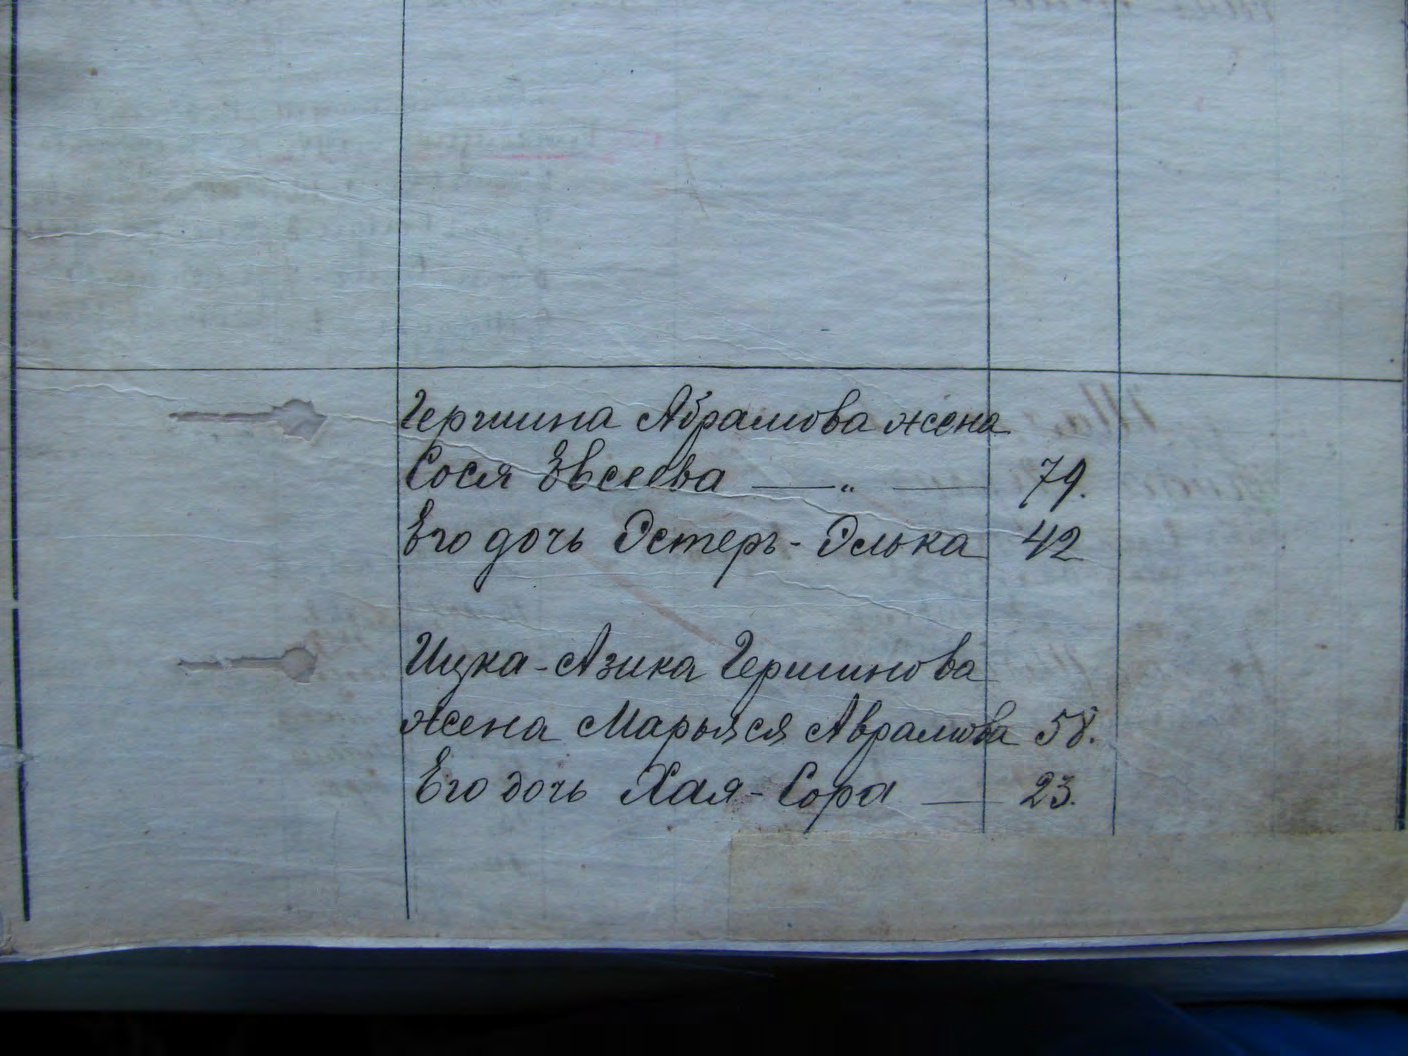 Гершина Абрамова жена
Сося Евсеева — „ — 79.
Его дочь Эстеръ - Элька 42
Ицка - Азика Гершинова
жена Марьяся Аврамова 58.
Его дочь Хая - Сора — 23.